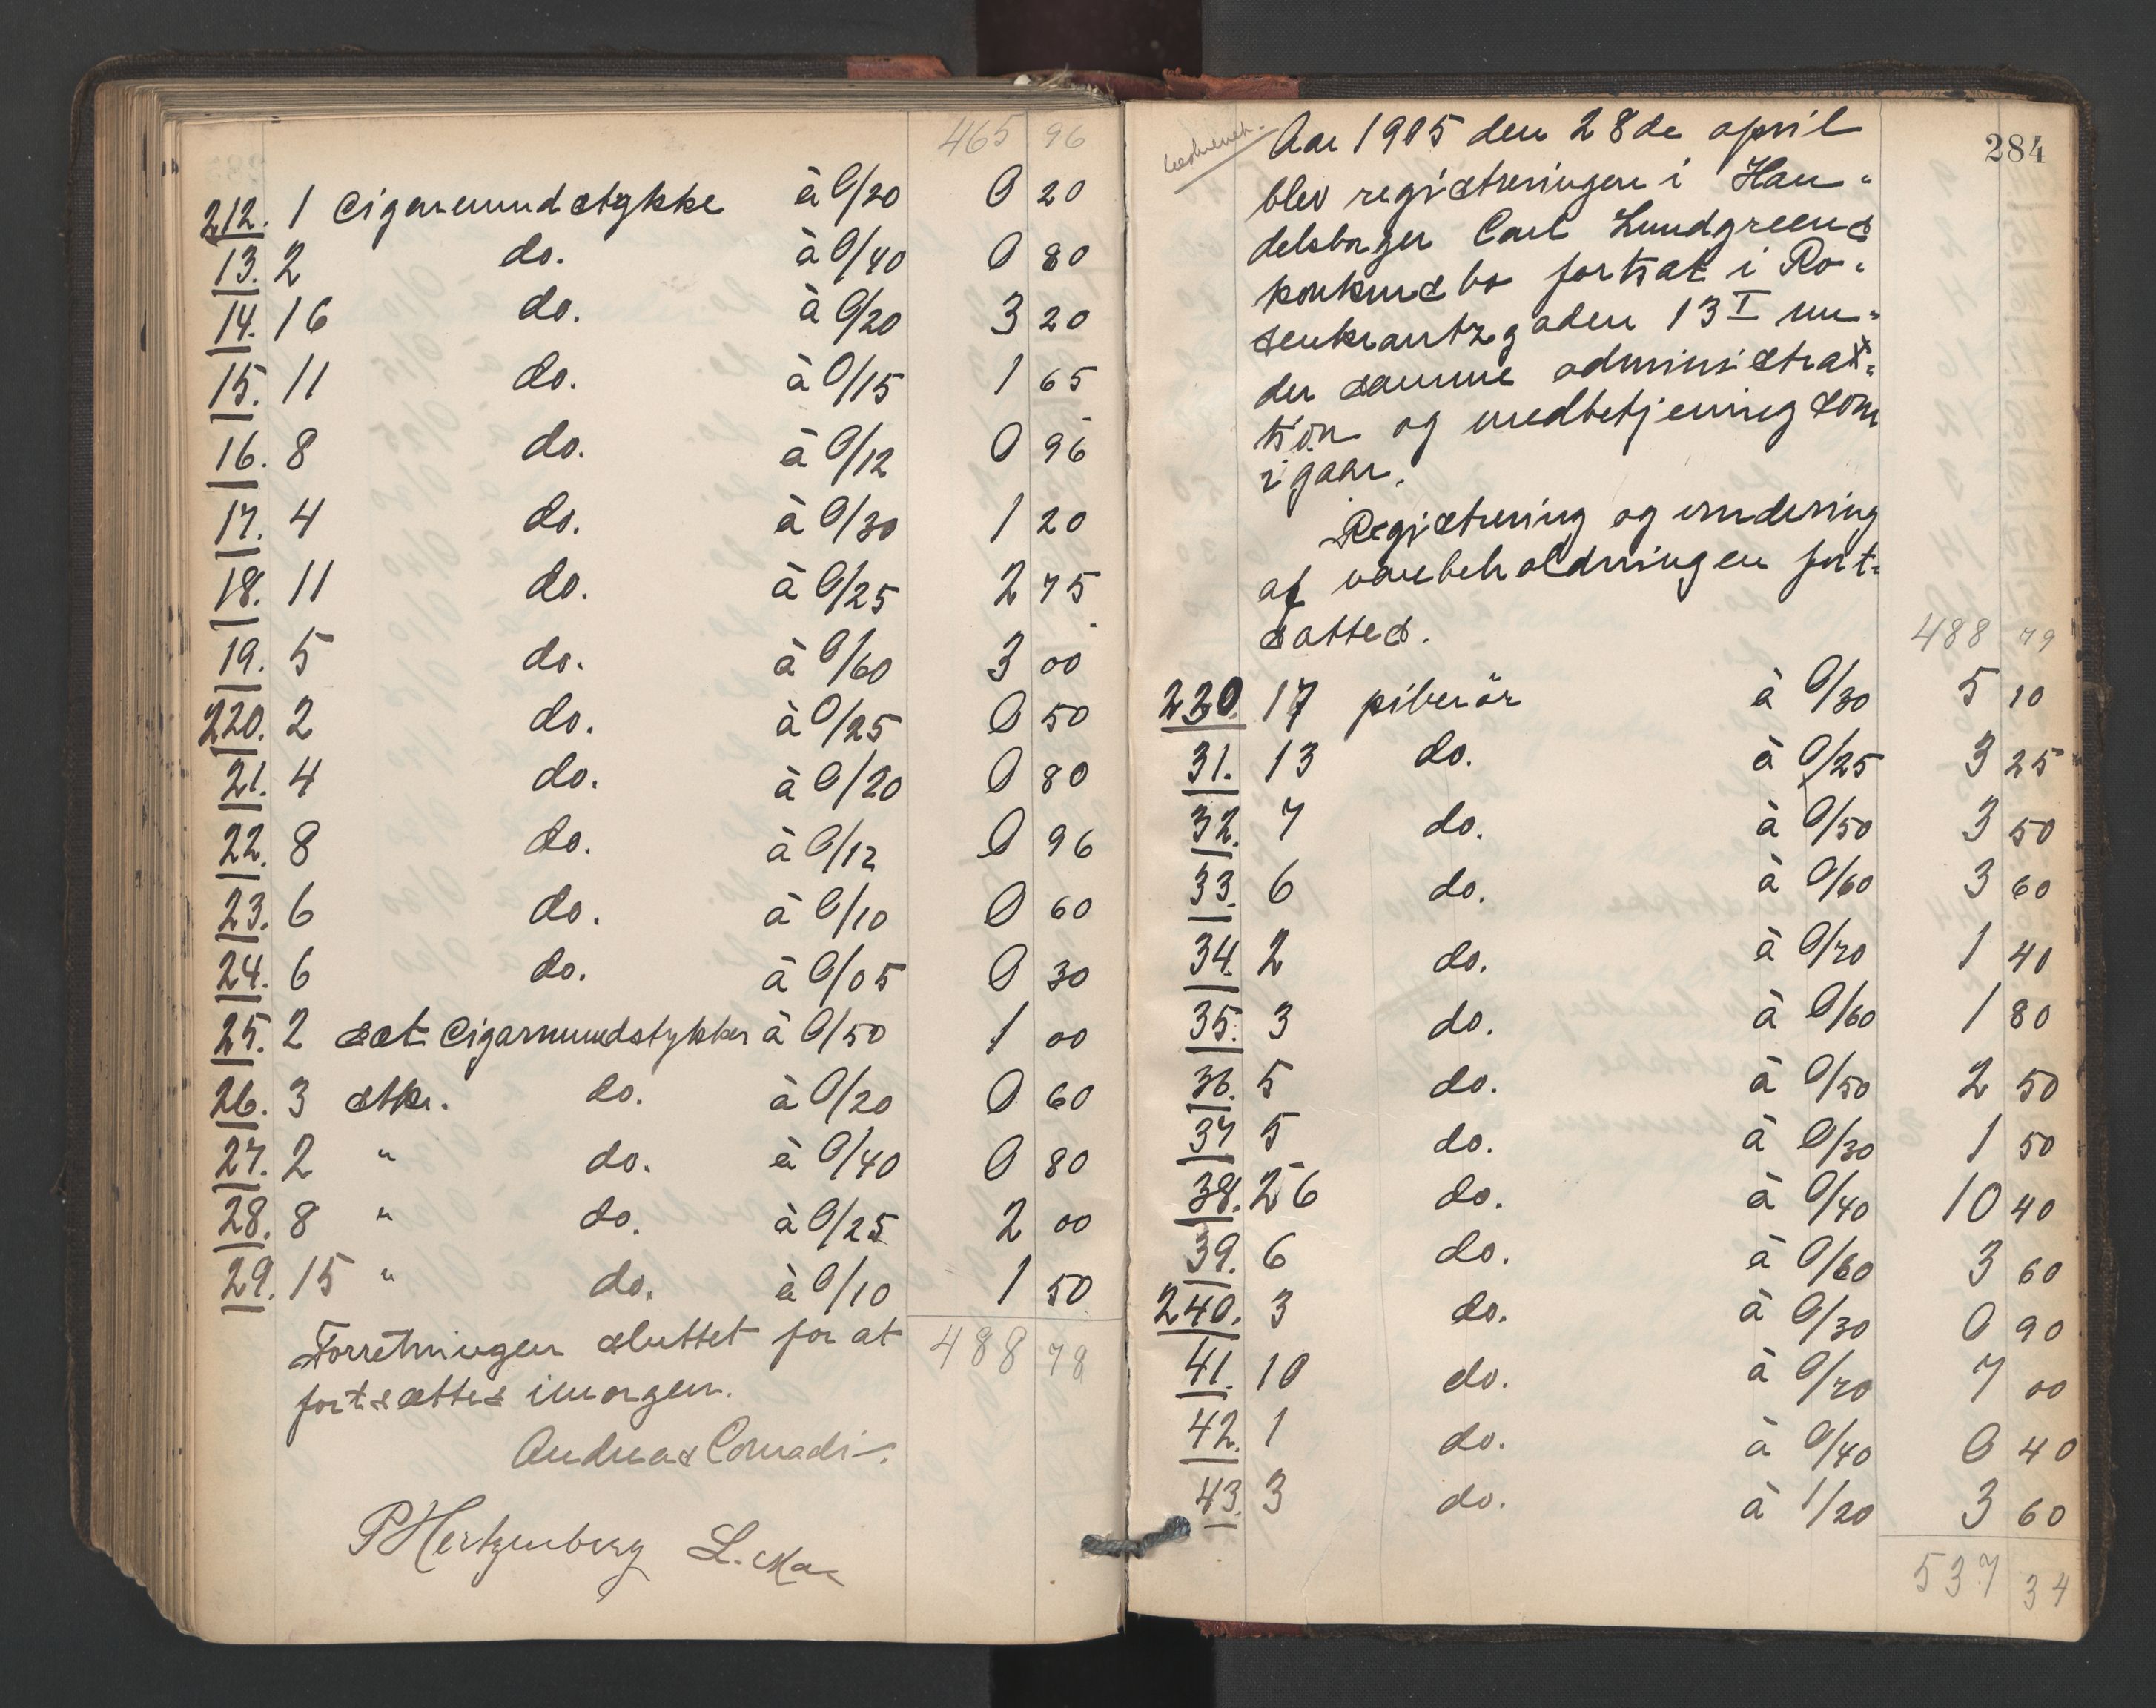 465 96
212. 1 Cigarmundstykke à 0/20 0 20
13. 2 do. à 0/40 0 80
14. 16 do. à 0/20 3 20
15. 11 do. à 0/15 1 65
16. 8 do. à 0/12 0 96
17. 4 do. à 0/30 1 20
18. 11 do. à 0/25 2 75
19. 5 do. à 0/60 3 00
220. 2 do. à 0/25 0 50
21. 4 do. à 0/20 0 80
22. 8 do. à 0/12 0 96
23. 6 do. à 0/10 0 60
24. 6 do. à 0/05 0 30
25. 2 sæt Cigarmundstykker à 0/50 1 00
26. 3 stkr. do. à 0/20 0 60
27. 2 " do. à 0/40 0 80
28. 8 " do. à 0/25 2 00
29. 15 " do. à 0/10 1 50
Forretningen sluttet for at 488 78
fortsættes imorgen.
Andreas Conradi.
P Hertzenberg L.
284
Aar 1905 den 28de april
blev registreringen i Han-
delsborger Carl Lundgreens
konkursbo fortsat i Ro-
senkrantzgaden 13 I un-
der samme administra-
tion og medbetjening som
igaar.
Registrering og vurdering
af varebeholdningen fort-
sattes. 488 79
230. 17 piberör à 0/30 5 10
31. 13 do. à 0/25 3 25
32. 7 do. à 0/50 3 50
33. 6 do. à 0/60 3 60
34. 2 do. à 0/70 1 40
35. 3 do. à 0/60 1 80
36. 5 do. à 0/50 2 50
37 5 do. à 0/30 1 50
38. 26 do. à 0/40 10 40
39. 6 do. à 0/60 3 60
240. 3 do. à 0/30 0 90
41. 10 do. à 0/70 7 00
42. 1 do. à 0/40 0 40
43. 3 do. à 1/20 3 60
537 34